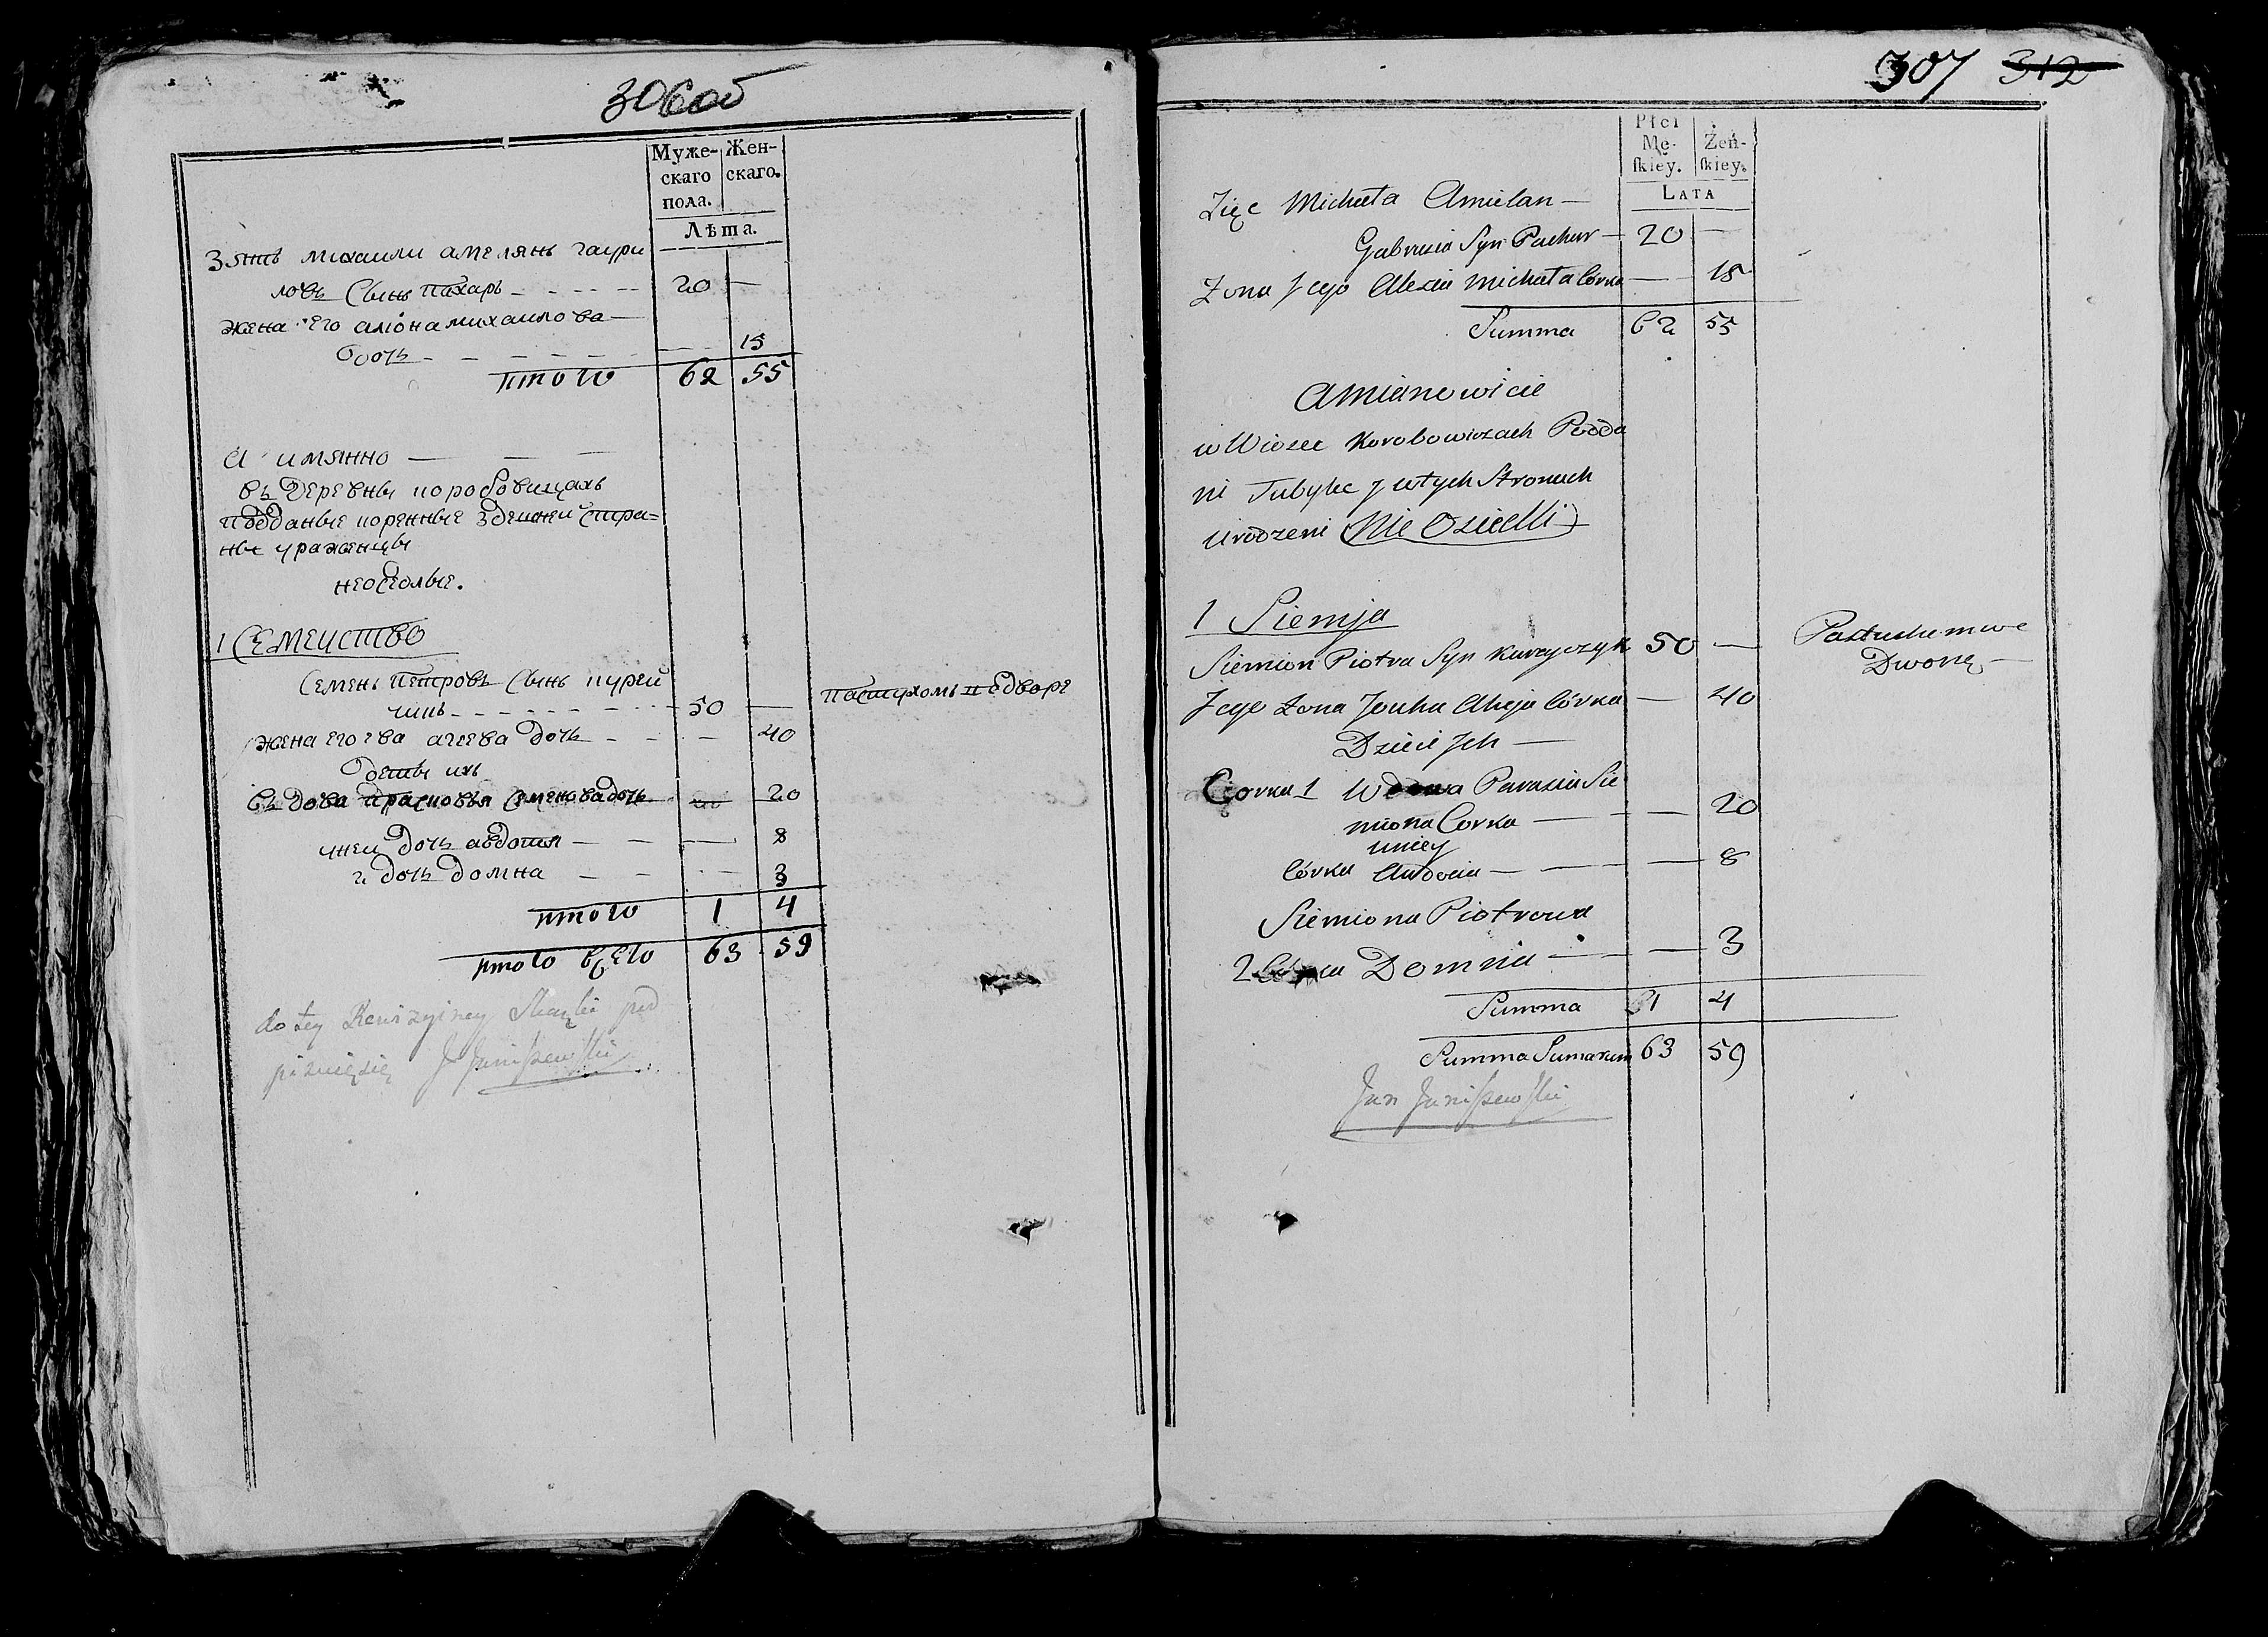 306об
Муже-
скаго
пола.
Жен-
скаго.
Лѣта.
Зять михаили амелянь гаври
ловъ Сынь пахарь 20 —
жена Его аліона михаилова
дочь 15
итого 62 55
А имянно
въ деревны коробовицахъ
подданые коренные здешнеи стра=
ны уроженцы
неоседлые.
1 Семеиство
Семень петровъ Сынь курей
чикь 50 — пастухомь п Едворе
жена его ева агеева дочь — 40
деты ихъ
въдова прасковья Семенова дочь 20
унеи дочь авдотя — 8
2 дочь домна — 3
итого 1 4
итого всего 63 59
do tey Rewizyiney Skazki pod
pisuię się J Juniszewski
307 312
Płci
Mę-
ſkiey.
Żeń-
ſkiey.
LATA
Zięc Michała Amielan —
Gabriela Syn Pachar — 20 —
Zona Jego Alexia Michała Corka — 15
Summa 62 55
Amianowicie
w Wiosce Korobowiczach Podda
ni Tubylce y wtych Stronach
Urodzeni Nie Osiedli
1 Siemja
Siemion Piotra Syn Kureyczyk 50 — Pastuchem we
Dworze —
Jego Zona Jewka Aheja Córka — 40
Dzieci Jch —
Corka 1 Wdowa Parasia Sie
miona Corka — 20
uniey
Córka Audocia — 8
Siemiona Piotrowa
2 Córka Domna — 3
Summa 1 4
Summa Sumarum 63 59
Jan Juniszewski